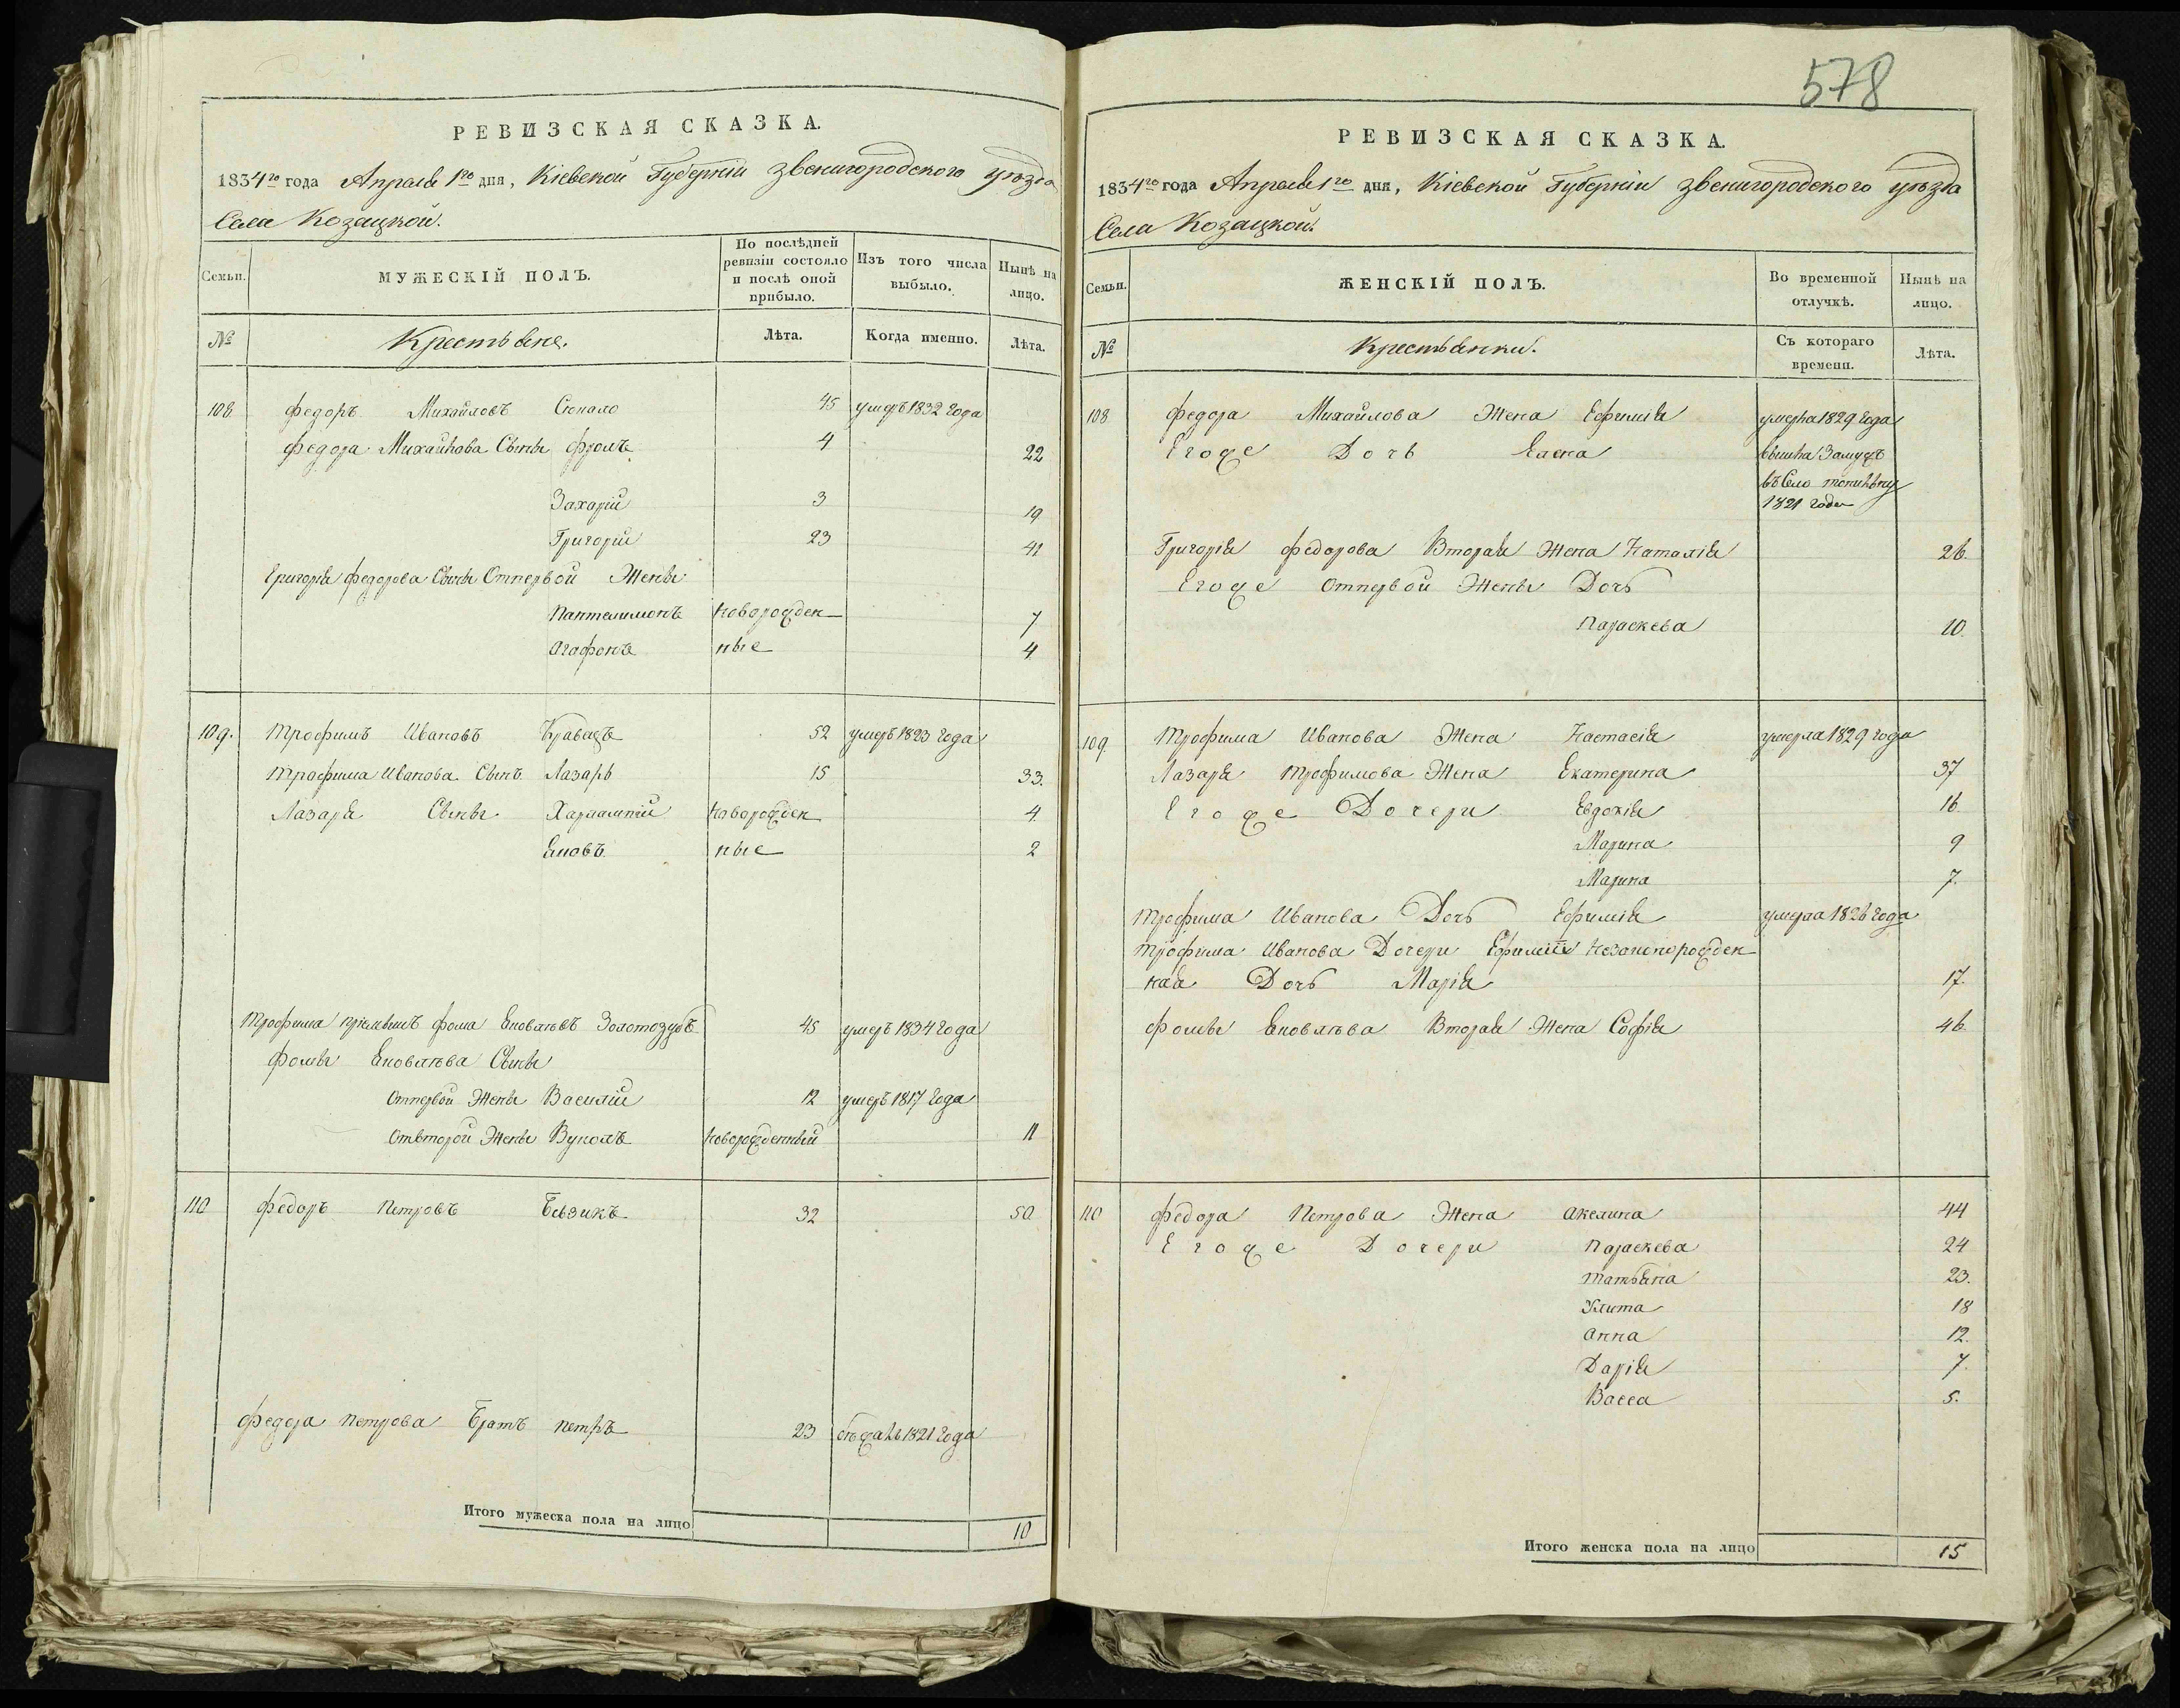 578
РЕВИЗСКАЯ СКАЗКА.
1834го года Апреля 1го дня, Кіевской Губерніи Звенигородского уѣзда
Села Козацкой.
Семьи. МУЖЕСКІЙ ПОЛЪ. По послѣдней ревизіи состояло и послѣ оной прибыло. Изъ того числа выбыло. Нынѣ на лицо.
№ Крестьяне. Лѣта. Когда именно. Лѣта.
108 Федоръ Михайловъ 45 умеръ 1832 года
Федора Михайлова Сыны Фролъ 4 22
Захарій 3 19
Григорій 23 41
Григорія Федорова Сыны Отпервой Жены
Пантелимонъ новорожден 7
Агафонъ ные 4
109. Трофимъ Ивановъ Кравецъ 52 умеръ 1823 года
Трофима Иванова Сынъ Лазарь 15 33.
Лазаря Сыны Харлампій новорожден 4.
Яковъ ные 2
Трофима пріемышъ Фома Яковлевъ Золотозубъ 45 умеръ 1834 года
Фомы Яковлева Сыны
Отпервой Жены Василій 12 умеръ 1817 года
Отвторой Жены Вуколъ новорожденный 11
110 Федоръ Петровъ 32 50
Федора Петрова Братъ Петръ 23 бѣжалъ 1821 года
Итого мужеска пола на лицо 10
РЕВИЗСКАЯ СКАЗКА.
1834го года Апреля 1го дня, Кіевской Губерніи Звенигородского уѣзда
Села Козацкой.
Семьи. ЖЕНСКІЙ ПОЛЪ. Во временной отлучкѣ. Нынѣ на лицо.
№ Крестьянки. Съ котораго времени. Лѣта.
108 Федора Михайлова Жена Ефимія умерла 1829 года
Егоже Дочь вышла Замужъ
въ Село
1821 года
Григорія Федорова Вторая Жена Наталія 26.
Егоже Отпервой Жены Дочь
Параскева 10.
109 Трофима Иванова Жена Настасія умерла 1829 года
Лазаря Трофимова Жена Екатерина 37
Егоже Дочери Евдокія 16
Марина 9
Марина 7.
Трофима Иванова Дочь Ефимія умерла 1826 года
Трофима Иванова Дочери Ефиміи Незаконорожден
ная Дочь Марія 17.
Фомы Яковлева Вторая Жена Софія 46
110 Федора Петрова Жена Акелина 44
Егоже Дочери Параскева 24
Татьяна 23.
Улита 18
Анна 12.
Дарія 7.
Васса 5.
Итого женска пола на лицо 15